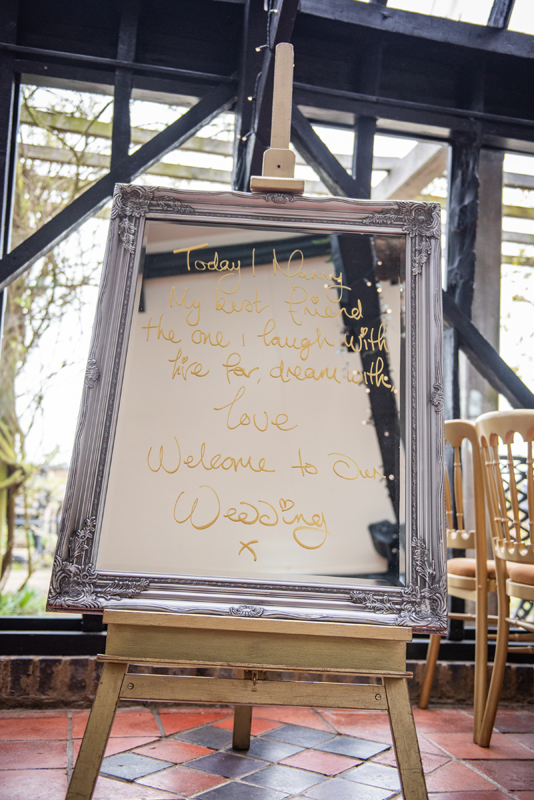 Today I Marry
My best friend
the one i laugh with
live for, dream with,
love
Welcome to Our
Wedding
x